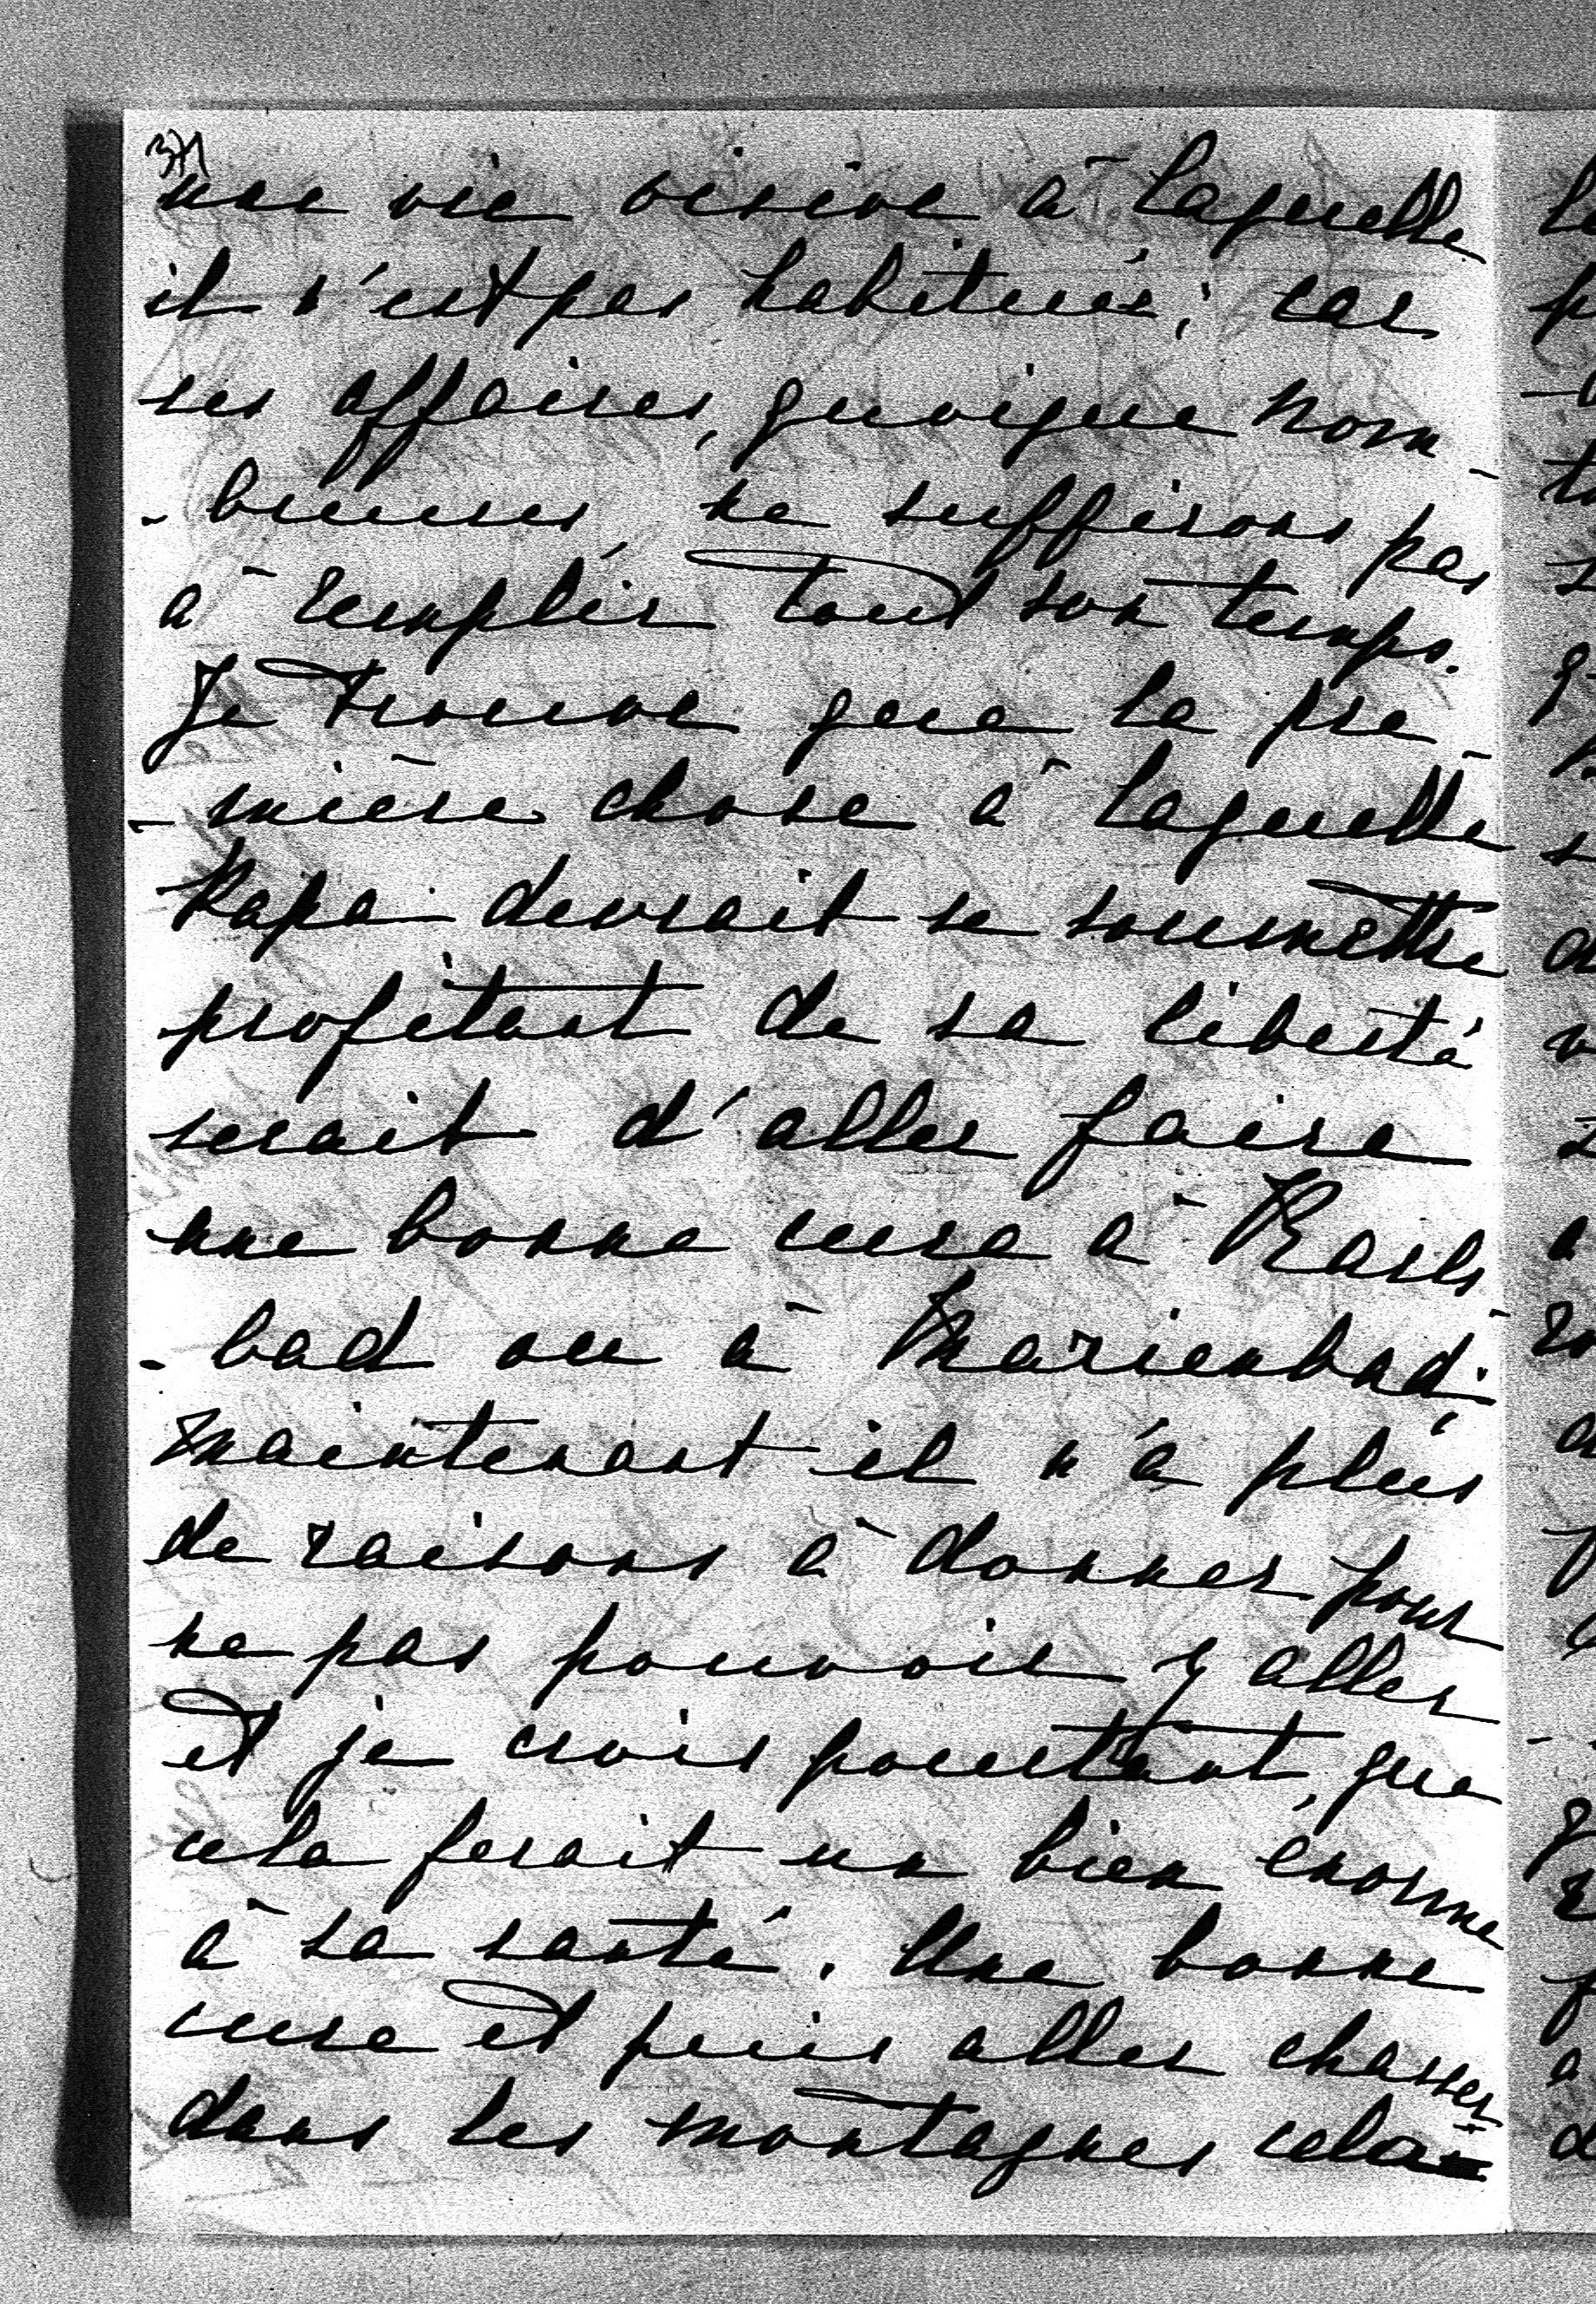 3)
une vie oisive à laquelle
il n'est pas habitué; car
ses affaires, quoique nom-
-breuses ne suffirons pas
à remplir tout son temps.
Je trouve que la pre-
-mière chose à laquelle
Papa devrait se soumettre
profitant de sa liberté
serait d'aller faire
une bonne cure à Karls-
-bad ou à Marienbad;
maintenant il n'a plus
de raisons à donner pour
ne pas pouvoir y aller
et je crois pourtant, que
cela ferait un bien énorme
à sa santé. Une bonne
cure et puis aller chasser
dans les montagnes cela